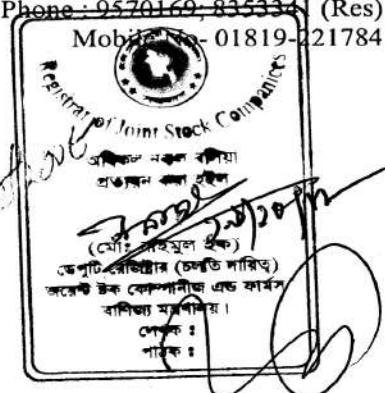 Phone : 9570169; 835334 (Res)
Mobile No- 01819-221784
Registrar of Joint Stock Companies
অবিকল নকল বলিয়া
প্রত্যয়ন করা হইল
ডেপুটি রেজিষ্ট্রার (চলতি দায়িত্ব)
জয়েন্ট ষ্টক কোম্পানীজ এন্ড ফার্মস
বাণিজ্য মন্ত্রণালয় ।
লেখক :
পাঠক :